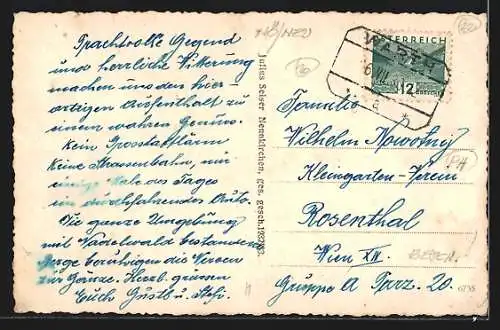 Prachtvolle Gegend
und herrliche Witterung
machen uns den hier-
artigen Aufenthalt zu
einem wahren Genuss.
Kein Grosstadtlärm
keine Strassenbahn, nur
einige Male des Tages
ein durchfahrendes Auto.
Die ganze Umgebung
mit Nadelwald bestandene
Berge beruhigen die Nerven
zur Gänze. Herzl. grüssen
Euch Gustl u. Stefi.
Julius Seiser Neunkirchen, ges. gesch.
ÖSTERREICH
12
Familie
Wilhelm Nowotny
Kleingarten-Verein
Rosenthal
Wien XII.
Gruppe A Parz. 20.